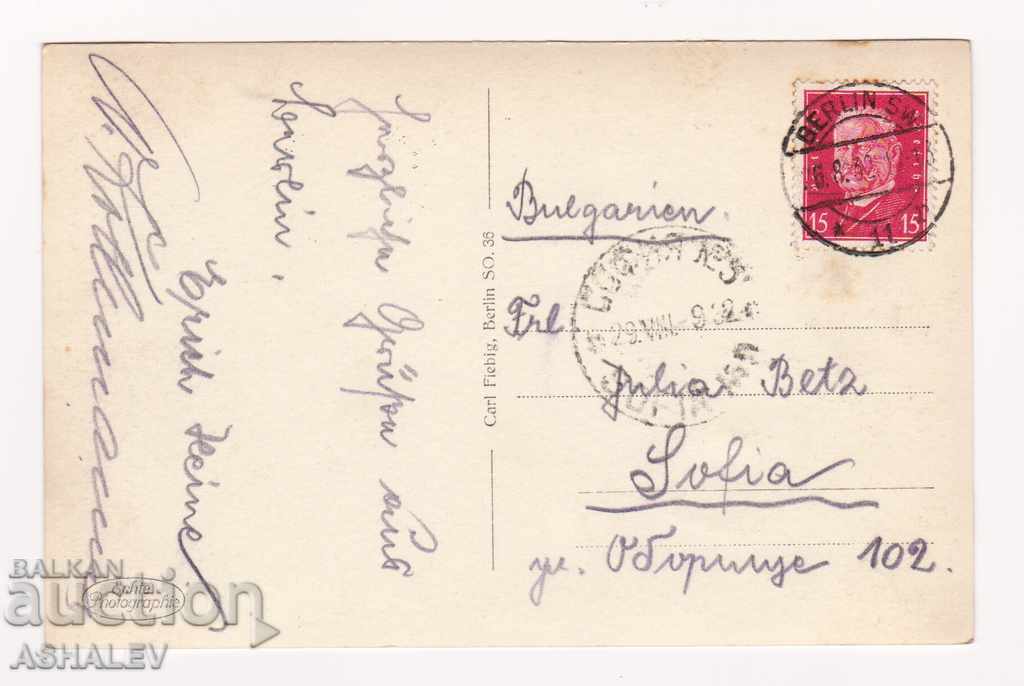 Herzliche Grüße aus
Berlin.
Erich Heine
Carl Fiebig, Berlin SO. 36
BERLIN SW
6.8.32
11
15 15
Bulgarien.
29.VIII.-932
SOFIA
Frl
Julia Betz
Sofia
ул. Оборище 102.
Echte
Photographie
BALKAN
auction
ASHALEV